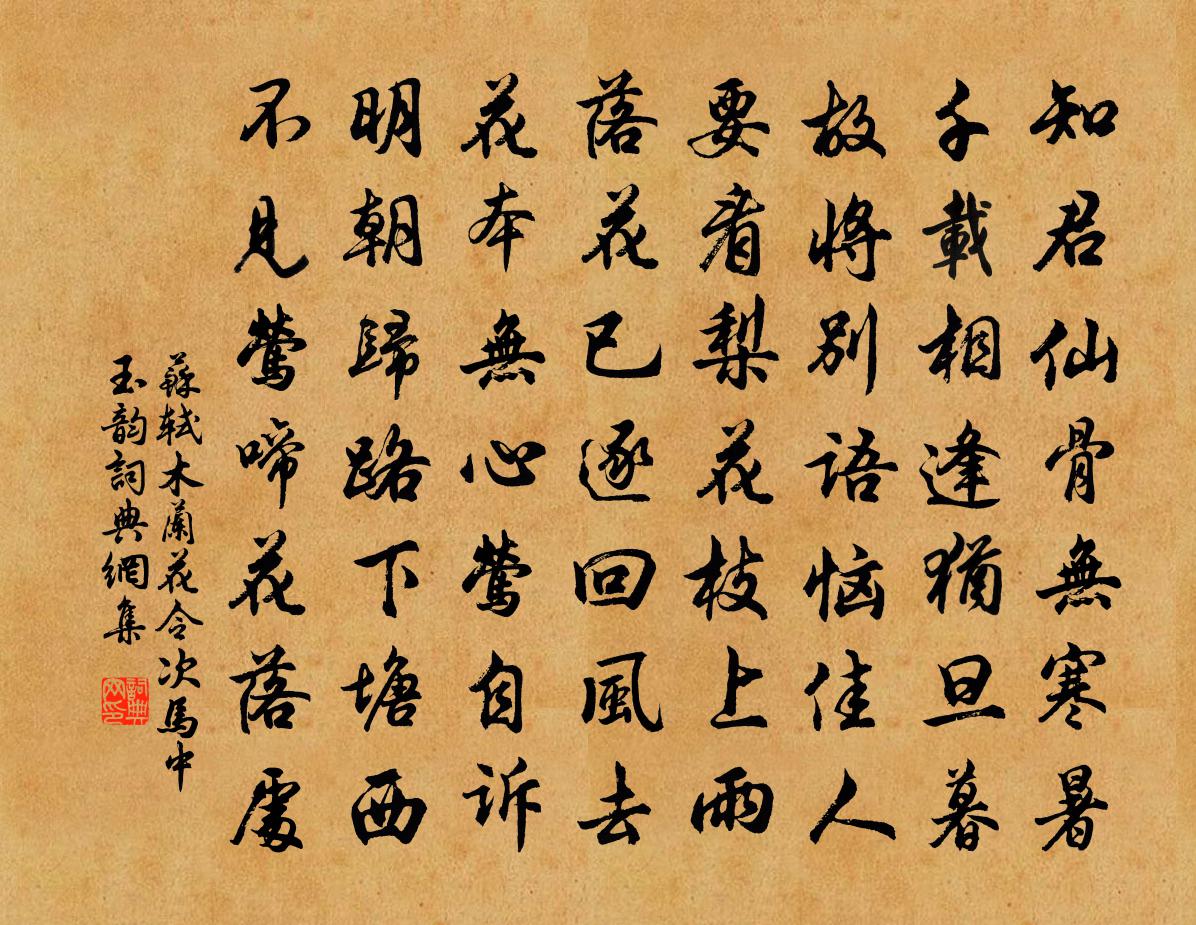 知君仙骨無寒暑
千載相逢猶旦暮
故將別語惱佳人
要看梨花枝上雨
落花已逐回風去
花本無心鶯自訴
明朝歸路下塘西
不見鶯啼花落處
蘇軾木蘭花令次馬中
玉韵詞典網集
詞典
網印